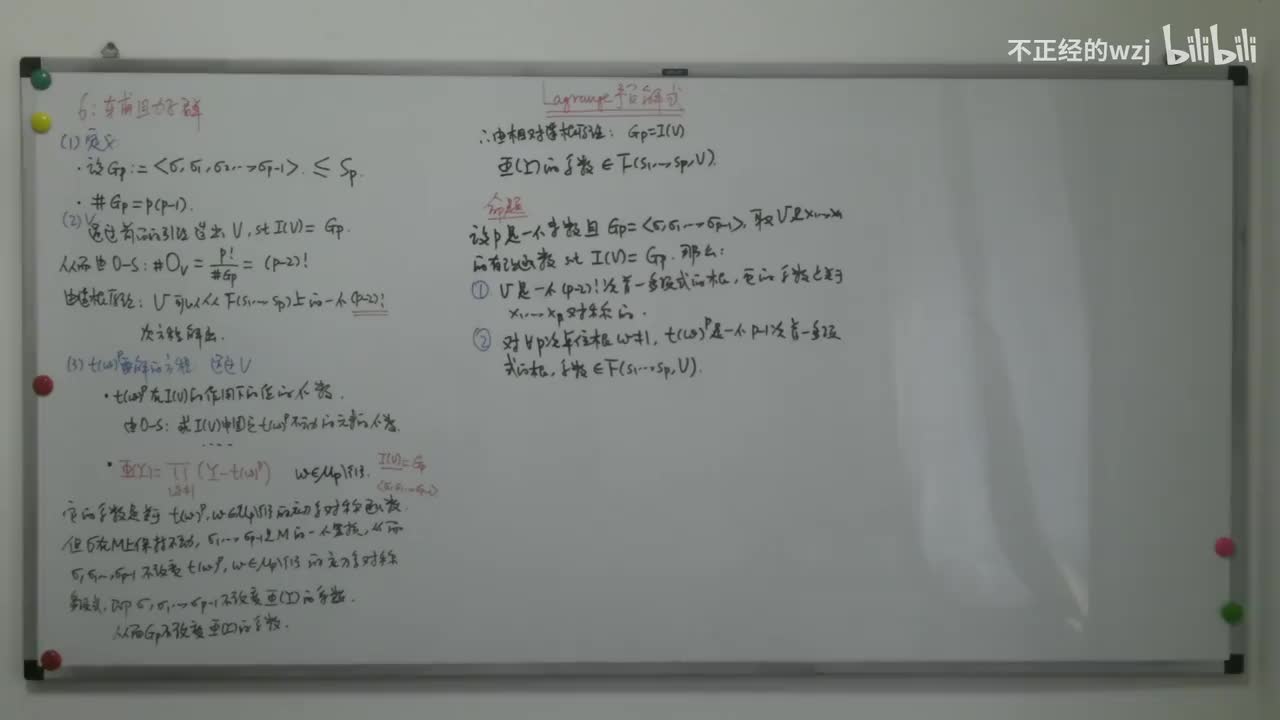 不正经的wzj bilibili
Lagrange预解式
6:
(1) 定义
· 设 Gp := <σ, σ1, σ2, ..., σp-1> ≤ Sp.
· #Gp = p(p-1).
(2) V
通过前面的引理 造出 V, st I(V) = Gp.
从而由 O-S: #OV = p!/#Gp = (p-2)!
V 可以从 F(s1...sp)上的一个(p-2)!
次方程解出.
(3) t(ω)^p 的方程 通过 V
· t(ω)^p 在 I(V) 的作用下的值的个数.
由O-S: 求 I(V)中固定 t(ω)^p 不动的元素的个数.
....
· Φ(Y) = ∏ (Y - t(ω)^p) ω∈μp\{1}. I(V) = Gp
ω≠1 <σ, σ1...σp-1>
它的系数是关于 t(ω)^p, ω∈μp\{1} 的初等对称函数.
但 σ在M上保持不动, σ1...σp-1是M的一个置换, 从而
σ, σ1..., σp-1 不改变 t(ω)^p, ω∈μp\{1} 的初等对称
多项式, 即 σ, σ1...σp-1 不改变 Φ(Y) 的系数.
从而Gp不改变 Φ(Y)的系数.
∴由相对 Gp = I(V)
Φ(Y)的系数 ∈ F(s1...sp, V).
命题
设 p 是一个素数且 Gp = <σ, σ1...σp-1>, 取 V 是 x1...xn
的有理函数 st I(V) = Gp. 那么:
① V 是一个 (p-2)! 次首一多项式的根, 它的系数是关于
x1, ..., xp 对称的.
② 对 ∀ p次单位根 ω≠1, t(ω)^p 是一个 p-1次首一多项
式的根, 系数 ∈ F(s1...sp, V).